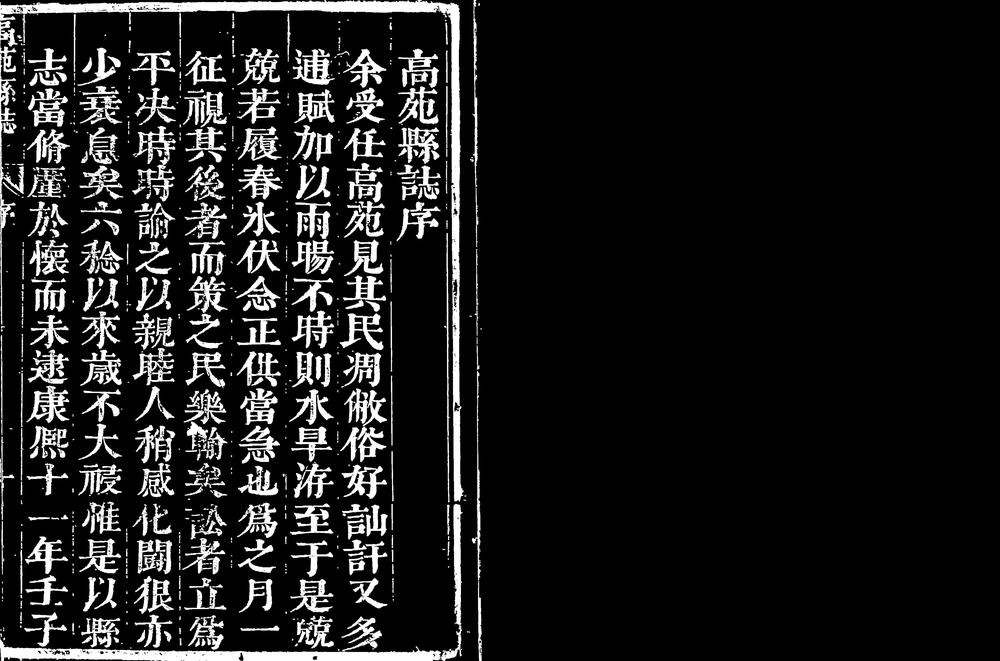 高苑縣誌序
余受任高苑見其民凋敝俗好訕訐又多
逋賦加以雨暘不時則水旱洊至于是兢
兢若履春氷伏念正供當急也爲之月一
征視其後者而策之民樂輸矣訟者立爲
平決時時諭之以親睦人稍感化鬬狠亦
少衰息矣六稔以來歲不大祲惟是以縣
志當脩厪於懷而未逮康熙十一年壬子
高苑縣誌
序
一